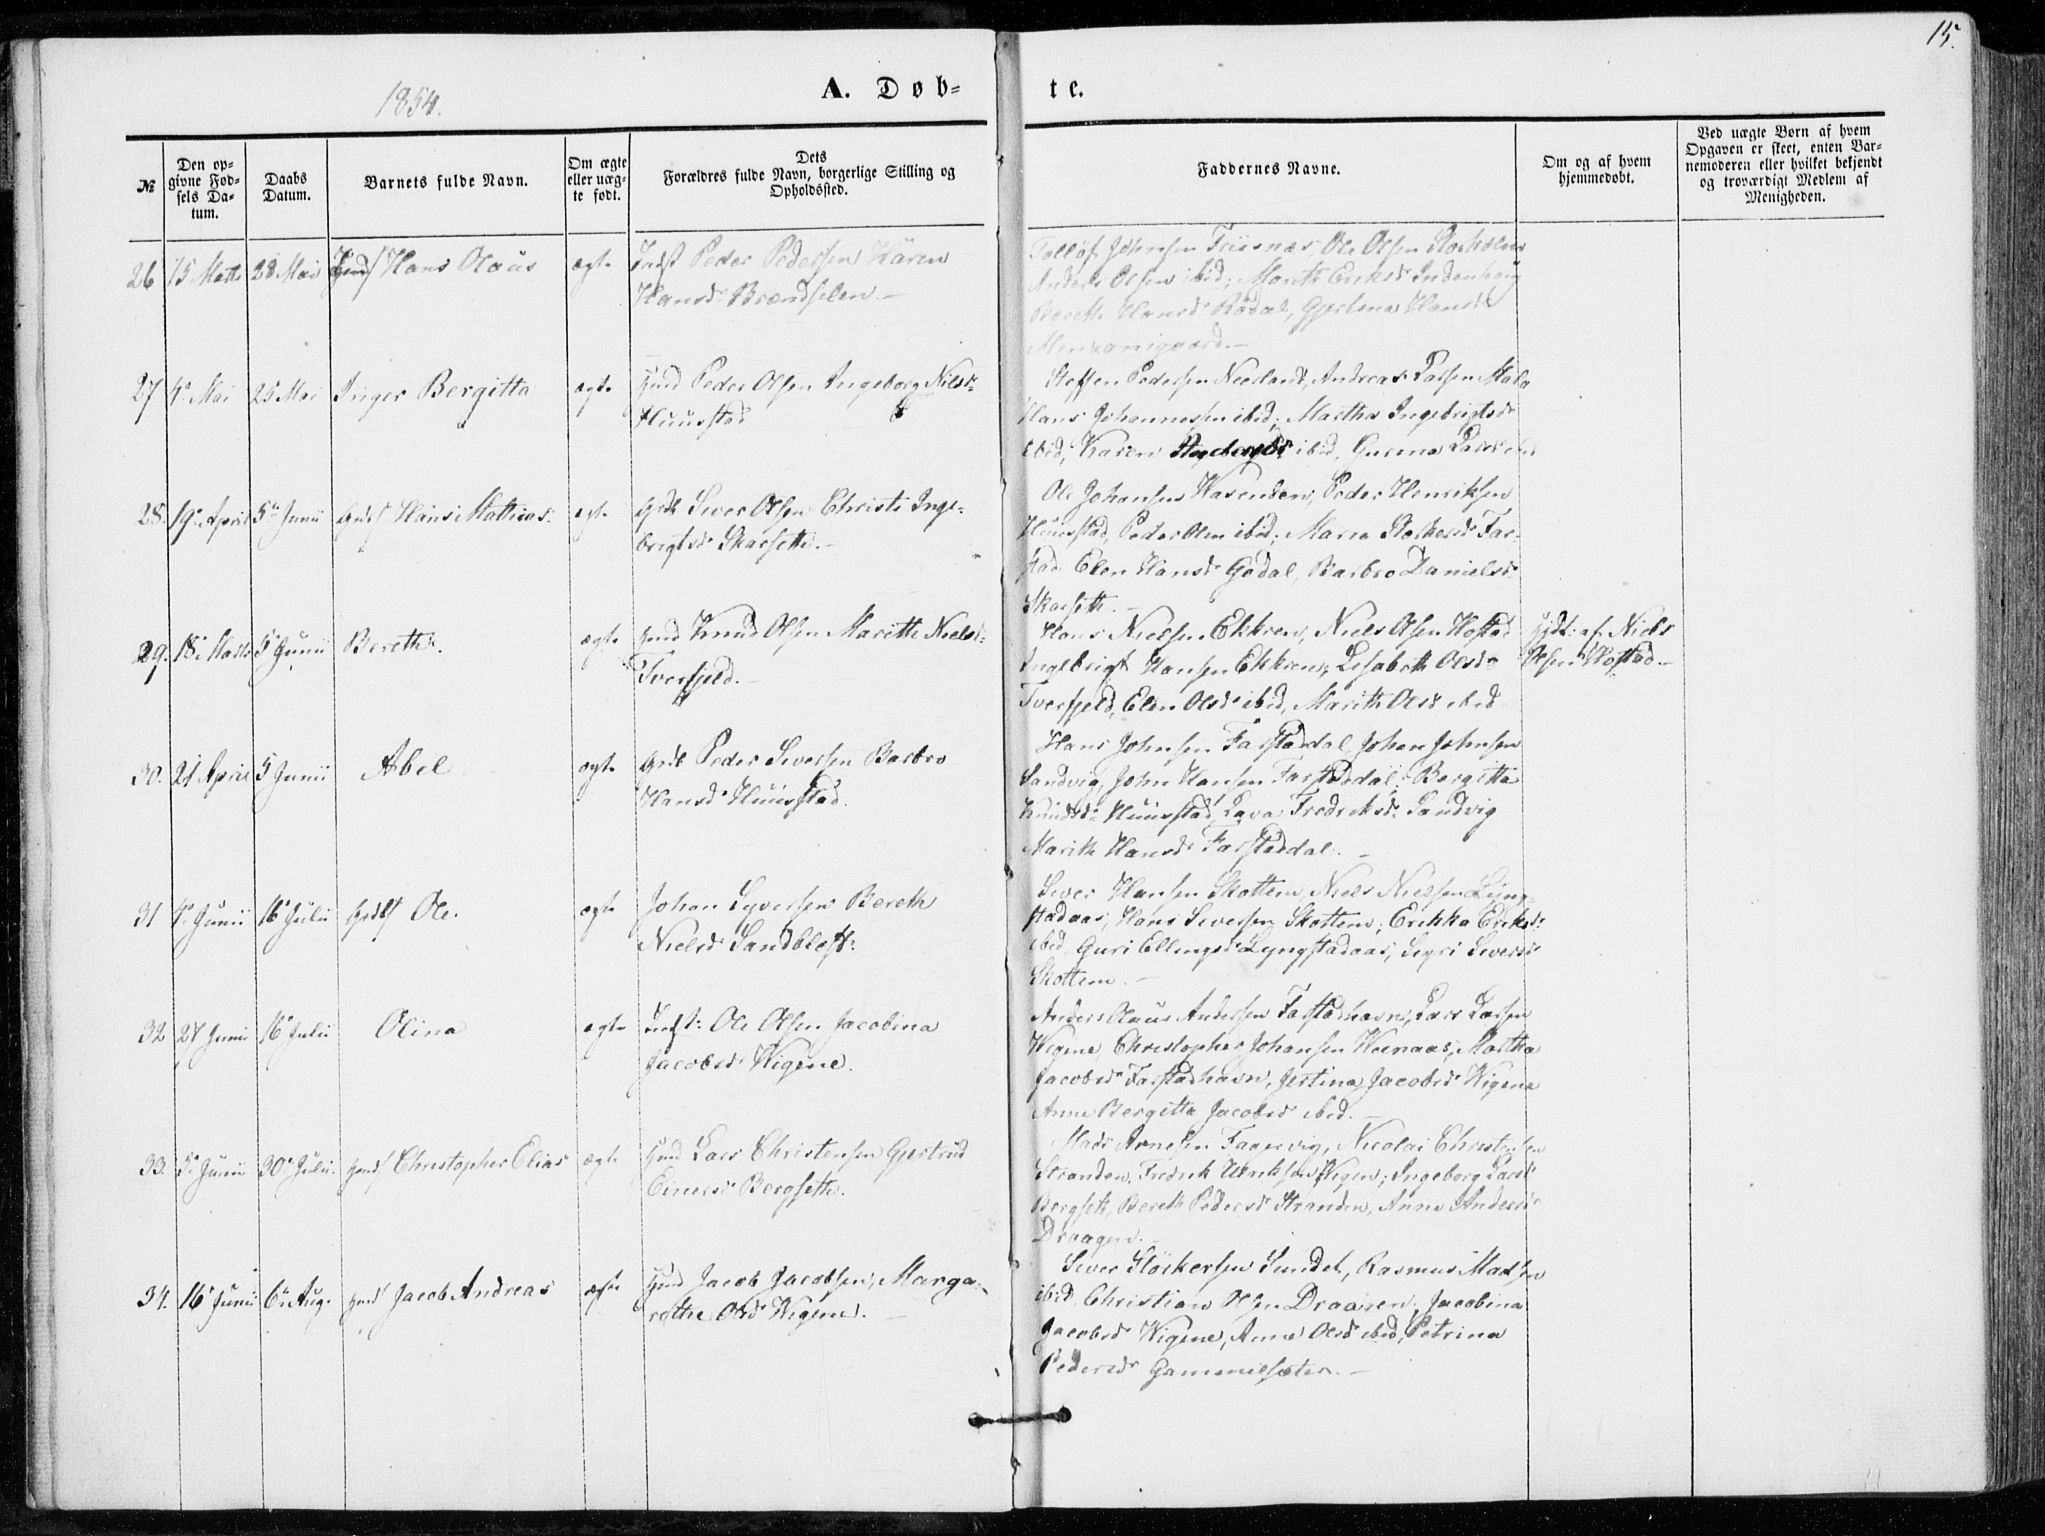 15.
1854.
A. Døb-
te.
№
Den op-
givne Fød-
sels Da-
tum.
Daabs
Datum.
Barnets fulde Navn.
Om ægte
eller uæg-
te født.
Dets
Forældres fulde Navn, borgerlige Stilling og
Opholdssted.
Faddernes Navne.
Om og af hvem
hjemmedøbt.
Ved uægte Børn af hvem
Opgaven er skeet, enten Bar-
nemoderen eller hvilket bekjendt
og troværdigt Medlem af
Menigheden.
26 15 Marts 28 Mai Hans Olaus ægte Indst Peder Pedersen Karen
Hansd: Brændselen.
Olsen ibid; Marith Eriksd
Bereth Hansd Rødal, Gjertina Hansd
27 4de Mai 25 Mai Inger Bergitta ægte Peder Olsen Ingeborg Nilsd:
Huustad
Steffen Pedersen Neerland, Andreas Larsen Malo
Hans Johannessen ibid; Martha Ingebrigtsd
ibid; Karen ibid. Gurina Larsd ibid
28. 19de April 5te Junii Hans Mathias. ægte Sever Olsen Christi Inge-
brigtsd Skarseth.
Ole Johansen Peder Henriksen
Huustad, Peder Olsen ibid; Far-
stad Elen Hansd Gødal, Barbro Danielsd
Skarseth.
29. 18de Marts 5te Junii Bereth. ægte Knud Olsen Marith Nielsd:
Tverfjeld.
Hans Nielsen Ekkren, Niels Olsen Hostad
Ingebrigt Hansen Ekkren, Lisabeth Olsd
Tverfjeld, Elen Olsd ibid, Marith Olsd ibid
af Niels
Olsen Hostad
30. 21 April 5 Junii Abel ægte Peder Seversen Barbro
Hansd Huustad.
Hans Johnsen Farstaddal, Johan Johnsen
Sandvig, John Hansen Farstaddal, Bergitta
Knudsd: Huustad, Lava Fredriksd: Sandvig
Marith Hansd Farstaddal.
31 4de Junii 16de Julii Ole. ægte Johan Syversen Bereth
Nielsd Sandblast:
Sever Hansen Skottem, Niels Nielsen Lyng-
stadaas, Hans Seversen Skottem; Erikka Eriksd:
ibid, Guri Ellingsd Lyngstadaas, Sigri Seversd
Skottem.
32 27 Junii 16de Julii Olina ægte Indst: Ole Olsen Jacobina
Jacobsd Wigene.
Anders Olaus Andersen Farstadhavn, Lars Larsen
Wigene, Christopher Johansen Martha
Jacobsd Farstadhavn, Jertina Jacobsd Wigene
Anne Bergitta Jacobsd ibid.
33. 5te Junii 30te Julii. Christopher Elias ægte Lars Christensen Gjertrud
Einersd Bergseth.
Mads Arnesen Fagervig, Nicolai Christensen
Stranden, Fredrik Wigen; Ingeborg Larsd
Bergseth, Bereth Pedersd Stranden, Anne Andersd
Draagen.
34. 16de Junii 6te Aug. Jacob Andreas ægte Jacob Jacobsen, Marga-
rethe Olsd Wigene.
Sever Sundet, Rasmus Madsen
ibid, Christian Olsen Draagen, Jacobina
Jacobsd Wigene, Anne Olsd ibid, Petrina
Pedersd Gammelsæter.